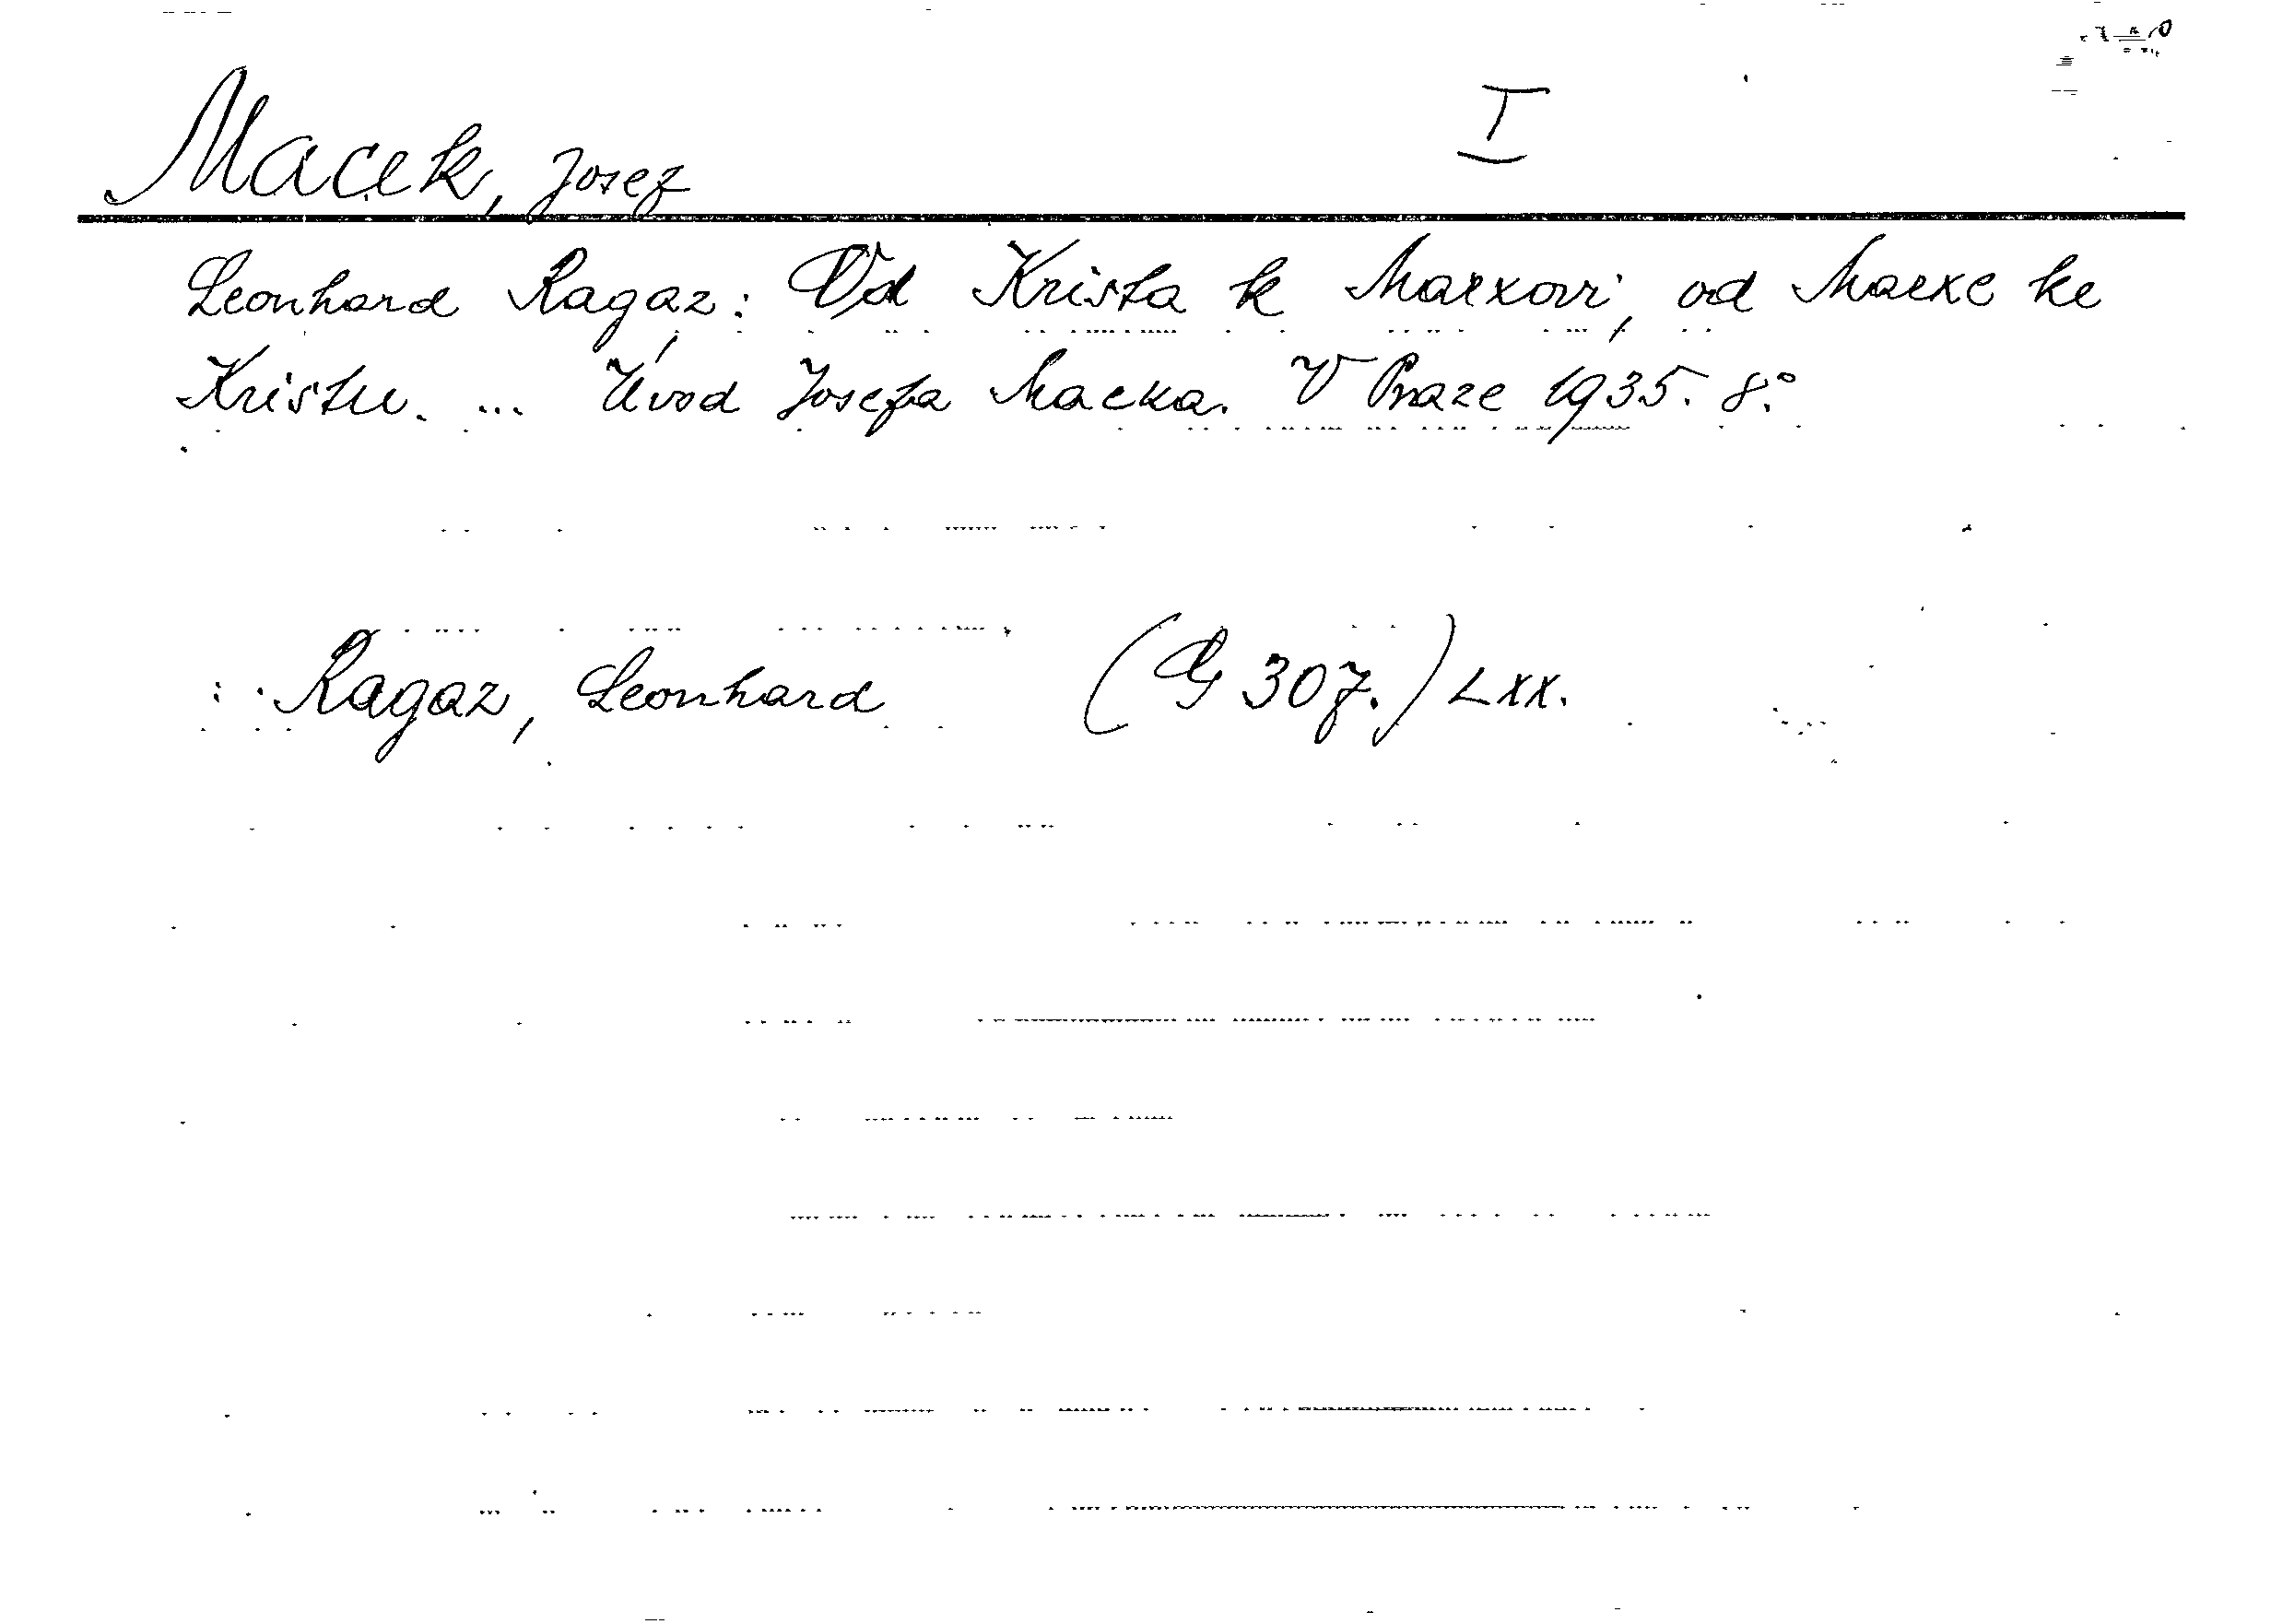 Macek, Josef I
Leonhard Ragaz: Od Krista k Marxovi, od Marxe ke
Kristu. ... Úvod Josefa Macka. V Praze 1935. 8°.
Ragaz, Leonhard (G 307.) LXX.